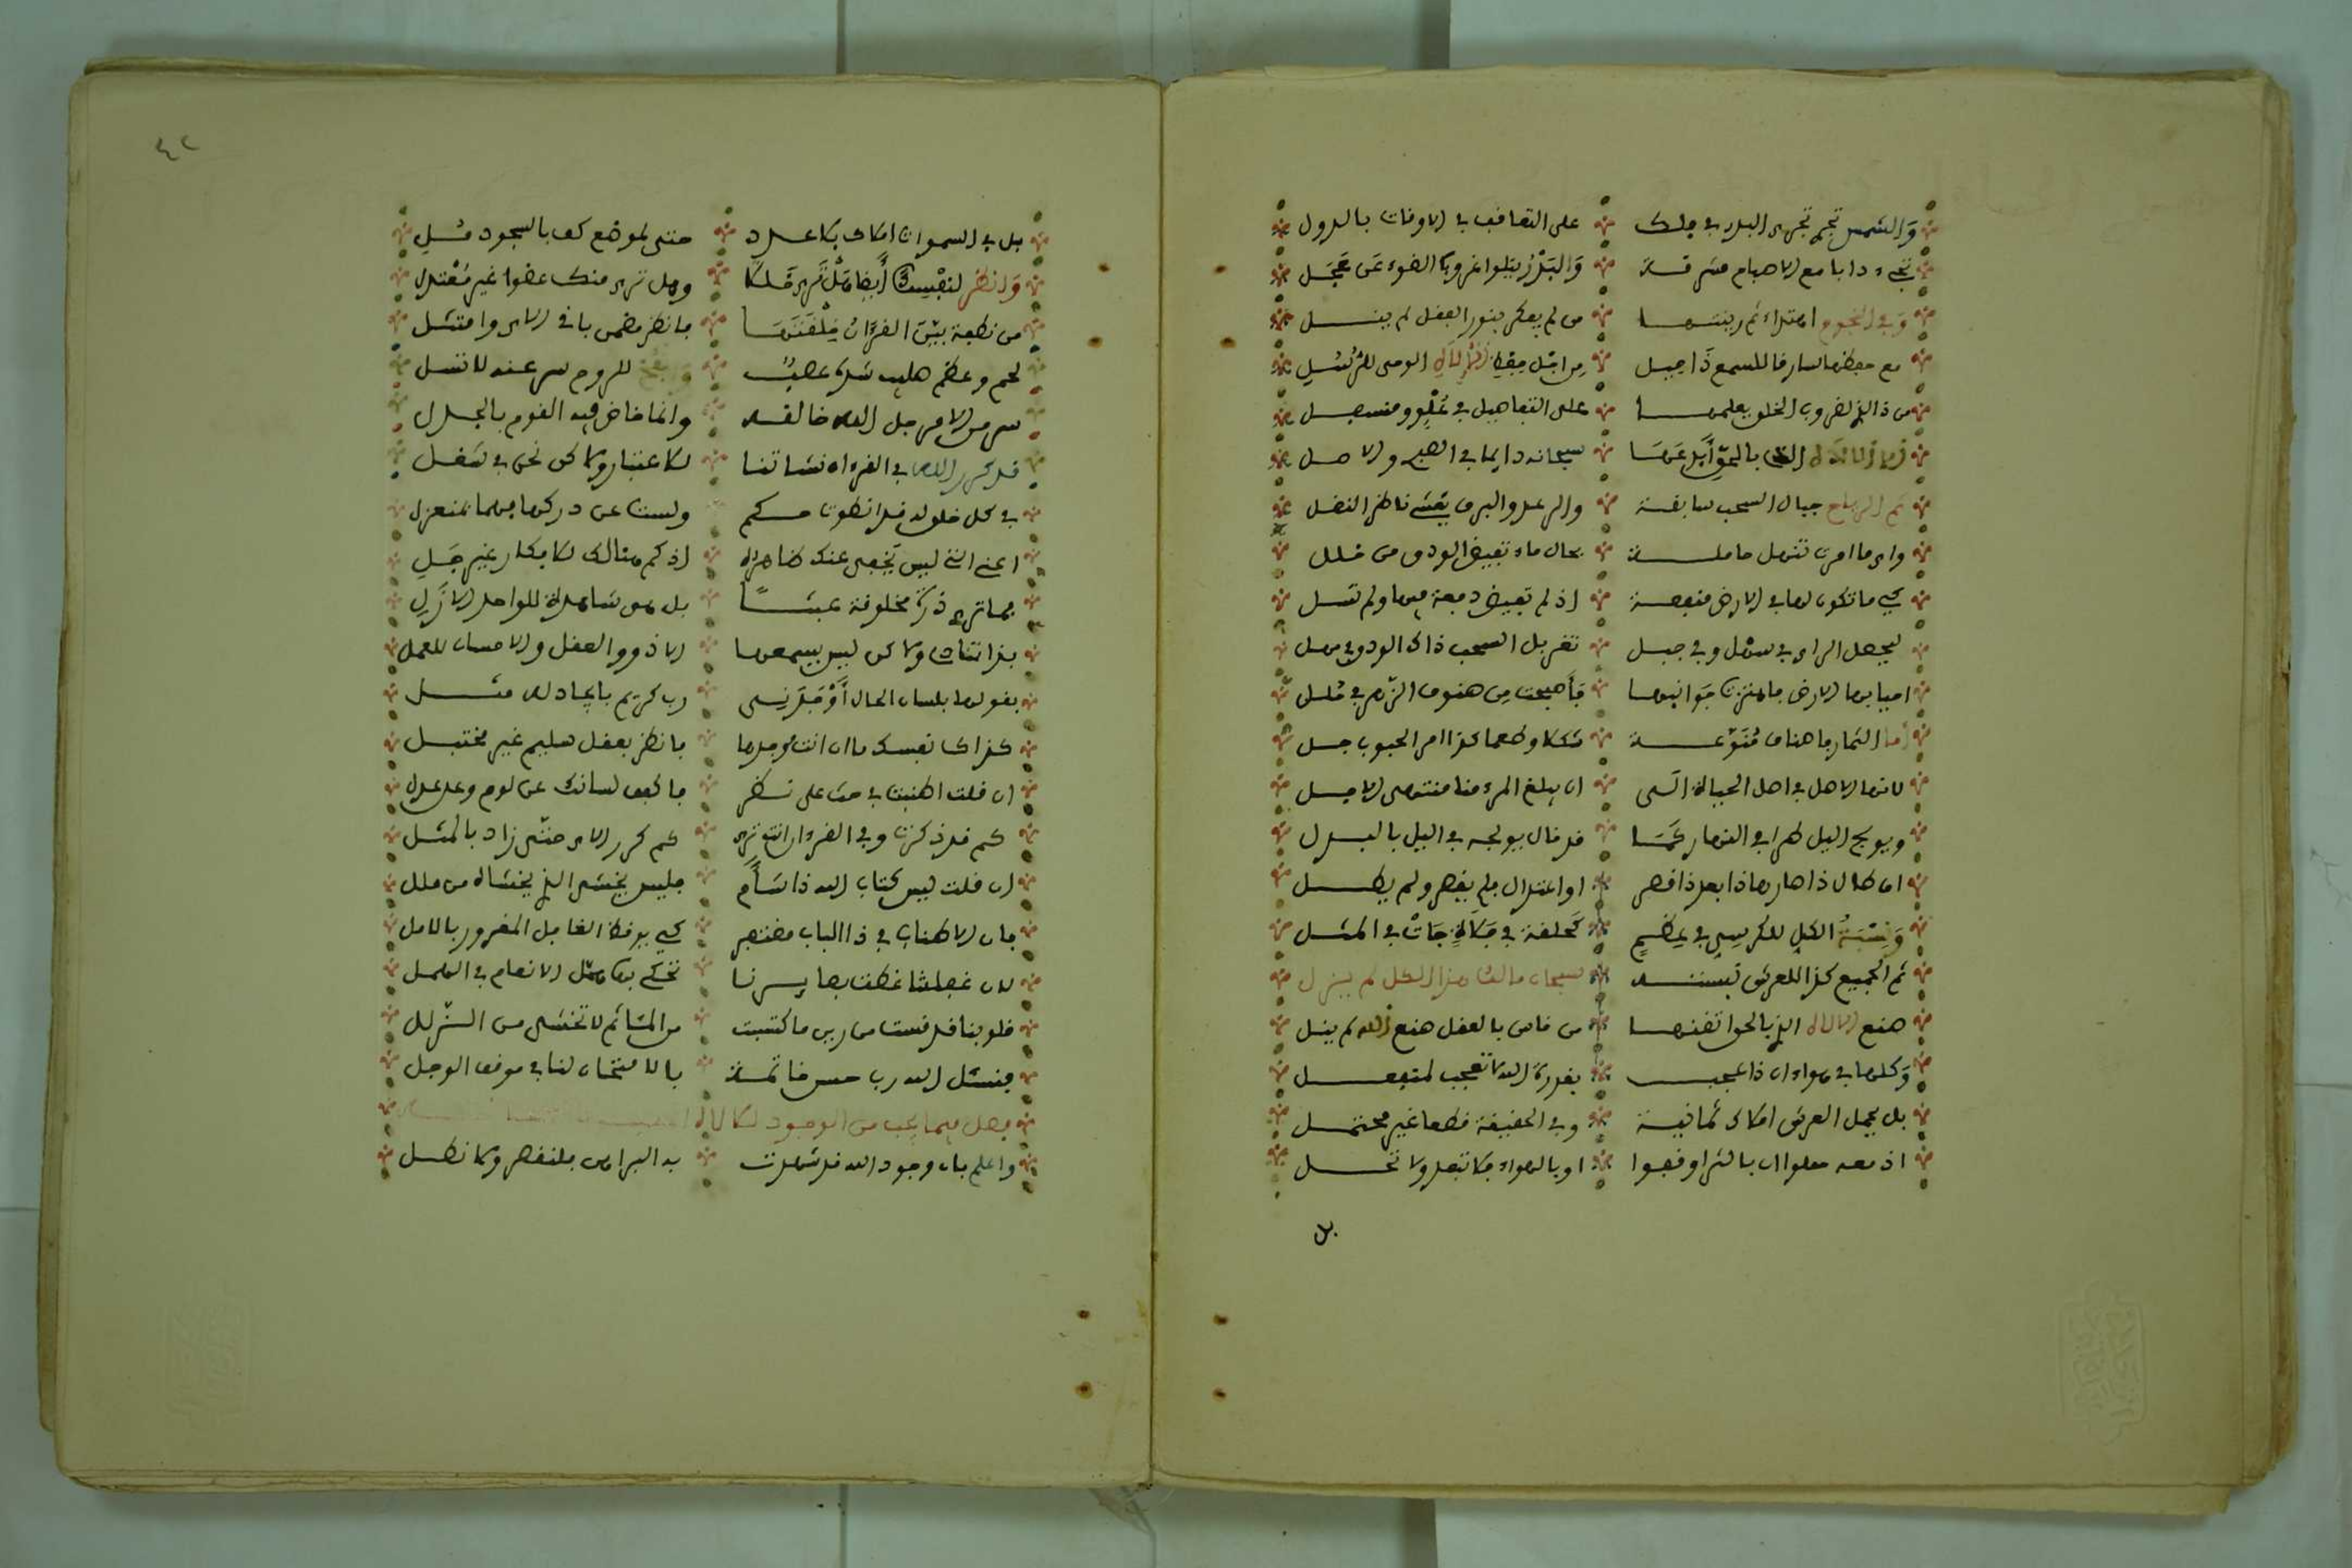 والشمس تجرى البدر في فلك على التعاقب في الاوقات بالدول
دابا مع الاصباح مشرقة والبدر يتلوا غروب الضوء عن عجل
وفي النجوم اهتداء ثم زينتها من لم يفكر بنور العقل لم ينل
مع حفظها السارقا للسمع ذا حيل من اجل حفظ الوحى للرسل
من ذا الذى الخلق يعلمها على التفاصيل في علو ومنسفل
سبحانه دايما في الصبح والاصل
ثم الرياح جبال السحب سابقة والرعد والبرق يغشى ناظر المقل
واى ما امرت تنهل حاملة بحال ماء تفيض الودق من خلل
كى ما تكون لها في الارض منفعة اذ لم تفيض دمعة منها ولم تسل
ليجعل الراى في سهل وفي جبل تغربل السحب ذاك الودق
احيا بها الارض فاهتزت جوانبها فاصبحت من صنوف الزهر في حلل
اما الثمار فاصناف منوعة شكلا وطعما كذا امر الحبوب جل
لانها الاصل في اصل الحياة الى ان يبلغ المرء منا منتهى الاجل
ويولج اليل طرا في النهار كما قد قال يولجه في اليل بالبدل
اما طال ذا صار هذا بعد ذا قصر او اعتدال فلم يقصر ولم يطل
ونسبة الكل للكرسي في عظم كحلقة في فلاة جات في المثل
ثم الجميع كذا للعرش نسبته سبحان مالك هذا الكل لم يزل
صنع الالاه الذى بالحق اتقنها من قاس بالعقل صنع الله لم ينل
وكلها في هواء ان ذا عجب بقدرة الله لا تعجب لمنفعل
بل يحمل العرش املاك ثمانية وفي الحقيقة قطعا غير محتمل
اذ معه حملوا ان بالثرا وقفوا او بالهواء فلا تبعد ولا تحل
بل
٤٢
بل في السموات املاك بلا عدد حتى لموضع كف بالسجود ملي
وانظر لنفسك ايضا هل ترى خللا وهل ترى منك عضوا غير معتدل
من نطفة بين القرءان خلقتها فانظر بفهم باق الاى وامتثل
لحم وعظم صليب شده عصب للروح سر عنه لا تسل
سر من الامر جل الله خالقه وانما خاض فيه القوم بالجدل
قد كرر الله في القرءان نشاتنا للاعتبار ولاكن نحن في شغل
في كل خلق له قد انطوت حكم ولست عن دركها فهما بمنعزل
اعنى التى ليس يخفى عنك ظاهره اذ كم هنالك للافكار غير جلي
فما ترى ذرة مخلوقة عبثا بل هى شاهدة للواحد الازل
بذا تنادى ولاكن ليس يسمعها الا ذوو العقل والاحسان للعمل
بقولها بلسان الحال اوجدنى رب كريم بايجاد له مثل
كذاك نفسك ما ان انت موجدها فانظر بعقل سليم غير مختبل
ان قلت اطنبت في حث على نظر فاكفف لسانك عن لوم وعن عذل
كم قد ذكرت وفي القرءان انت ترى كم كرر الاى حتى زاد بالمثل
ان قلت ليس كتاب الله ذا سام فليس يخشى الذى يخشاه من ملل
فان الاطناب في ذا الباب مفتقر كى يوقظ الغافل المغرور بالامل
لان غفلتنا غطت بصايرنا تحكى بنا مثل الانعام في الهمل
قلوبنا قد قست من رين ما كتسبت من المثاثم لا تخشى من الزلل
فنسئل الله رب حسن خاتمة بالامتحان لنا في موقف الوجل
فصل فيما يجب من الوجود للالاه
واعلم بان وجود الله قد شهدت به البراهن فلتقصر ولا تطل